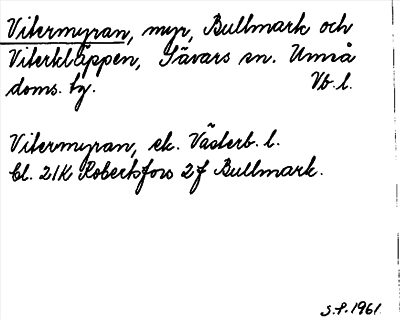 Vitermyran, myr, Bullmark och
Viterkläppen, Sävars sn. Umeå
doms. hg. Vb. l.
Vitermyran, ek. Västerb. l.
Bl. 21K Robertsfors 2f Bullmark.
S.f. 1961